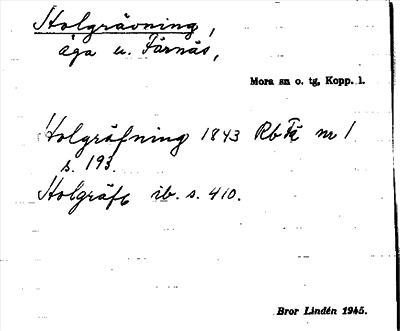 Holgrävning,
äga u. Färnäs,
Mora sn o. tg, Kopp. l.
Holgräfning 1843 Rb Fä nr 1
s. 193.
Holgräft ib. s. 410.
Bror Lindén 1945.